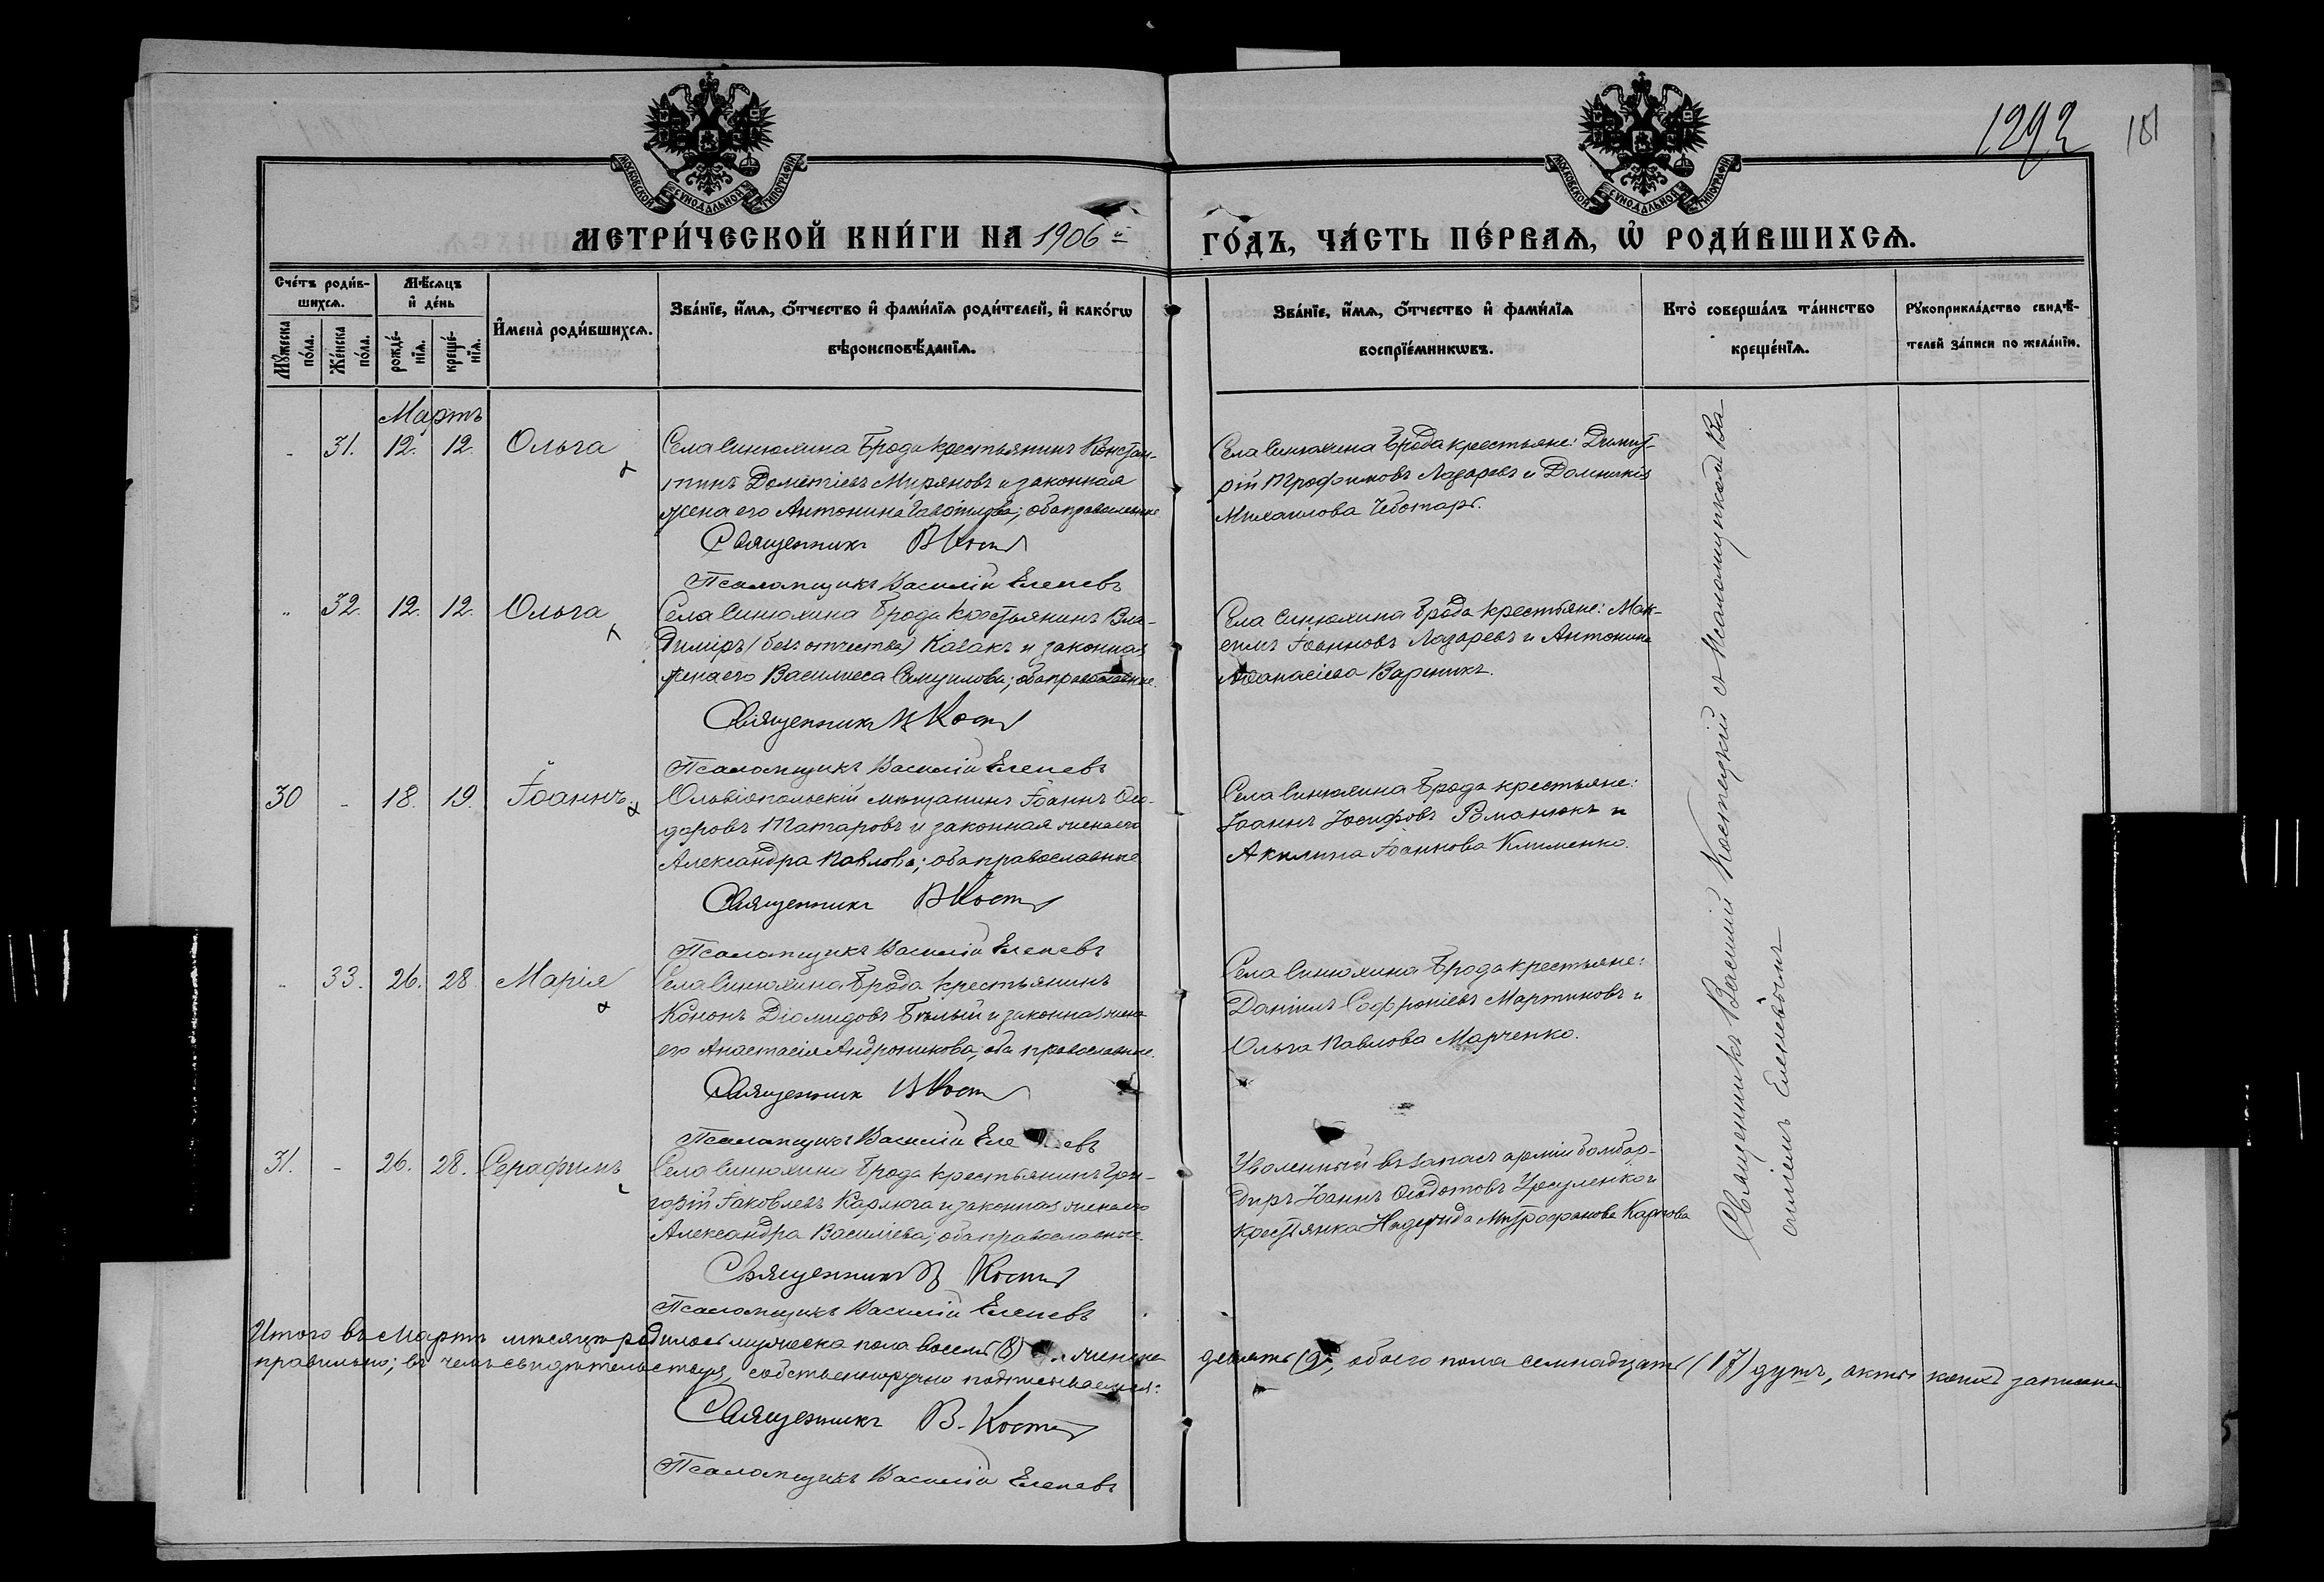 1292
181
МОСКОВСКОЙ СѴНОДАЛЬНОЙ ТИПОГРАФІИ
МОСКОВСКОЙ СѴНОДАЛЬНОЙ ТИПОГРАФІИ
МЕТРИ́ЧЕСКОЙ КНИ́ГИ НА 1906й
ГО́ДЪ, ЧА́СТЬ ПЕ́РВАѦ, Ѡ҆ РОДИ́ВШИХСѦ.
Сче́тъ роди́в-
шихсѧ.
Мѣ́сѧцъ
и҆ де́нь
Мꙋ́жеска
по́ла.
Же́нска
по́ла.
рожде́-
нїѧ.
креще́-
нїѧ.
И҆мена̀ роди́вшихсѧ.
Зва́нїе, и҆́мѧ, ѻ҆́тчество и҆ фами́лїѧ роди́телей, и҆ како́гѡ
вѣроисповѣ́данїѧ.
Зва́нїе, и҆́мѧ, ѻ҆́тчество и҆ фами́лїѧ
воспрїе́мникѡвъ.
Кто̀ соверша́лъ та́инство
креще́нїѧ.
Рꙋкоприкла́дство свидѣ́-
телей за́писи по жела́нїю.
Мартъ
- 31. 12. 12. Ольга
Села Синюхина Брода крестьянинъ Констан-
тинъ Дометіевъ Миряновъ и законная
жена его Антонина; оба православные
Священникъ В Кост
Псаломщикъ Василій Еленевъ
Села Синюхина Брода крестьяне: Димит-
рій Трофимовъ Лазаревъ и Домникія
Михаилова Чеботарь.
„ 32. 12. 12. Ольга
Села Синюхина Брода крестьянинъ Вла-
димиръ (безъ отчества) Казакъ и законная
жена его Василиса Самуилова; оба православные.
Священникъ В Кост
Псаломщикъ Василій Еленевъ
Села Синюхина Брода крестьяне: Мак-
симъ Іоанновъ Лазаревъ и Антонина
Аѳанасіева Варникъ.
30 - 18. 19. Іоаннъ
Ольвіопольскій мѣщанинъ Іоаннъ Ѳео-
доровъ Татаровъ и законная жена его
Александра Павлова; оба православные
Священникъ В Кост
Псаломщикъ Василій Еленевъ
Села Синюхина Брода крестьяне:
Іоаннъ Іосифовъ Романюкъ и
Акилина Іоаннова Клименко.
„ 33. 26. 28. Марія
Села Синюхина Брода крестьянинъ
Кононъ Діомидовъ Бѣлый и законная жена
его Анастасія Андроникова; оба православные.
Священник В Кост
Псаломщикъ Василій Еле евъ
Села Синюхина Брода крестьяне:
Даніилъ Софроніевъ Мартиновъ и
Ольга Павлова Марченко.
31. - 26. 28. Серафимъ
Села Синюхина Брода крестьянинъ Гри-
горій Іаковлевъ Карлюга и законная жена его
Александра Василіева; оба православные.
Священникъ В Кост
Псаломщикъ Василій Еленевъ
Уволенный въ запасъ арміи бомбар-
диръ Іоаннъ Ѳеодотовъ Урсуленко и
крестьянка Надежда Митрофанова Карпова
Священникъ Василій Костецкій съ псаломщикомъ Ва-
силіемъ Еленевымъ
Итого въ Мартѣ мѣсяцѣ родилось мужеска пола восемь (8) и женска девять (9), обоего пола семнадцать (17) душъ, акты коихъ записаны
правильно; въ чемъ свидѣтельствуя, собственноручно подписываемся:
Священникъ В. Кост
Псаломщикъ Василій Еленевъ